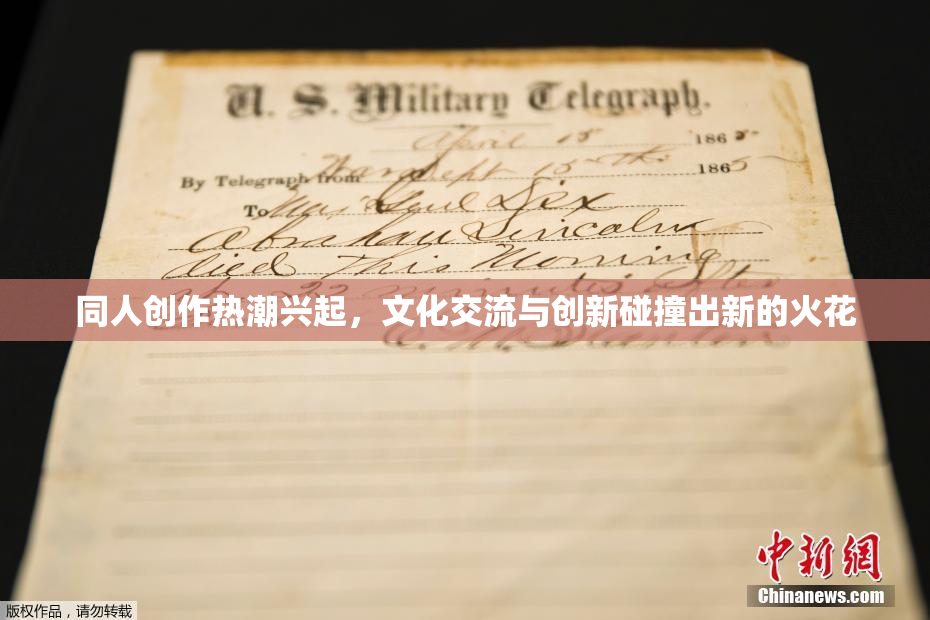 U. S. Military Telegraph.
April 15 1865
By Telegraph from War Dept 15th 1865
To Maj Genl Dix
Abraham Lincoln
died This Morning
at 22 minutes after
同人创作热潮兴起，文化交流与创新碰撞出新的火花
中新网
Chinanews.com
版权作品，请勿转载